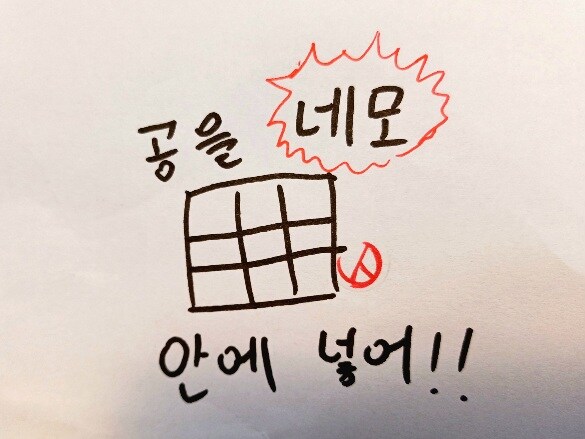 공을 네모
안에 넣어!!